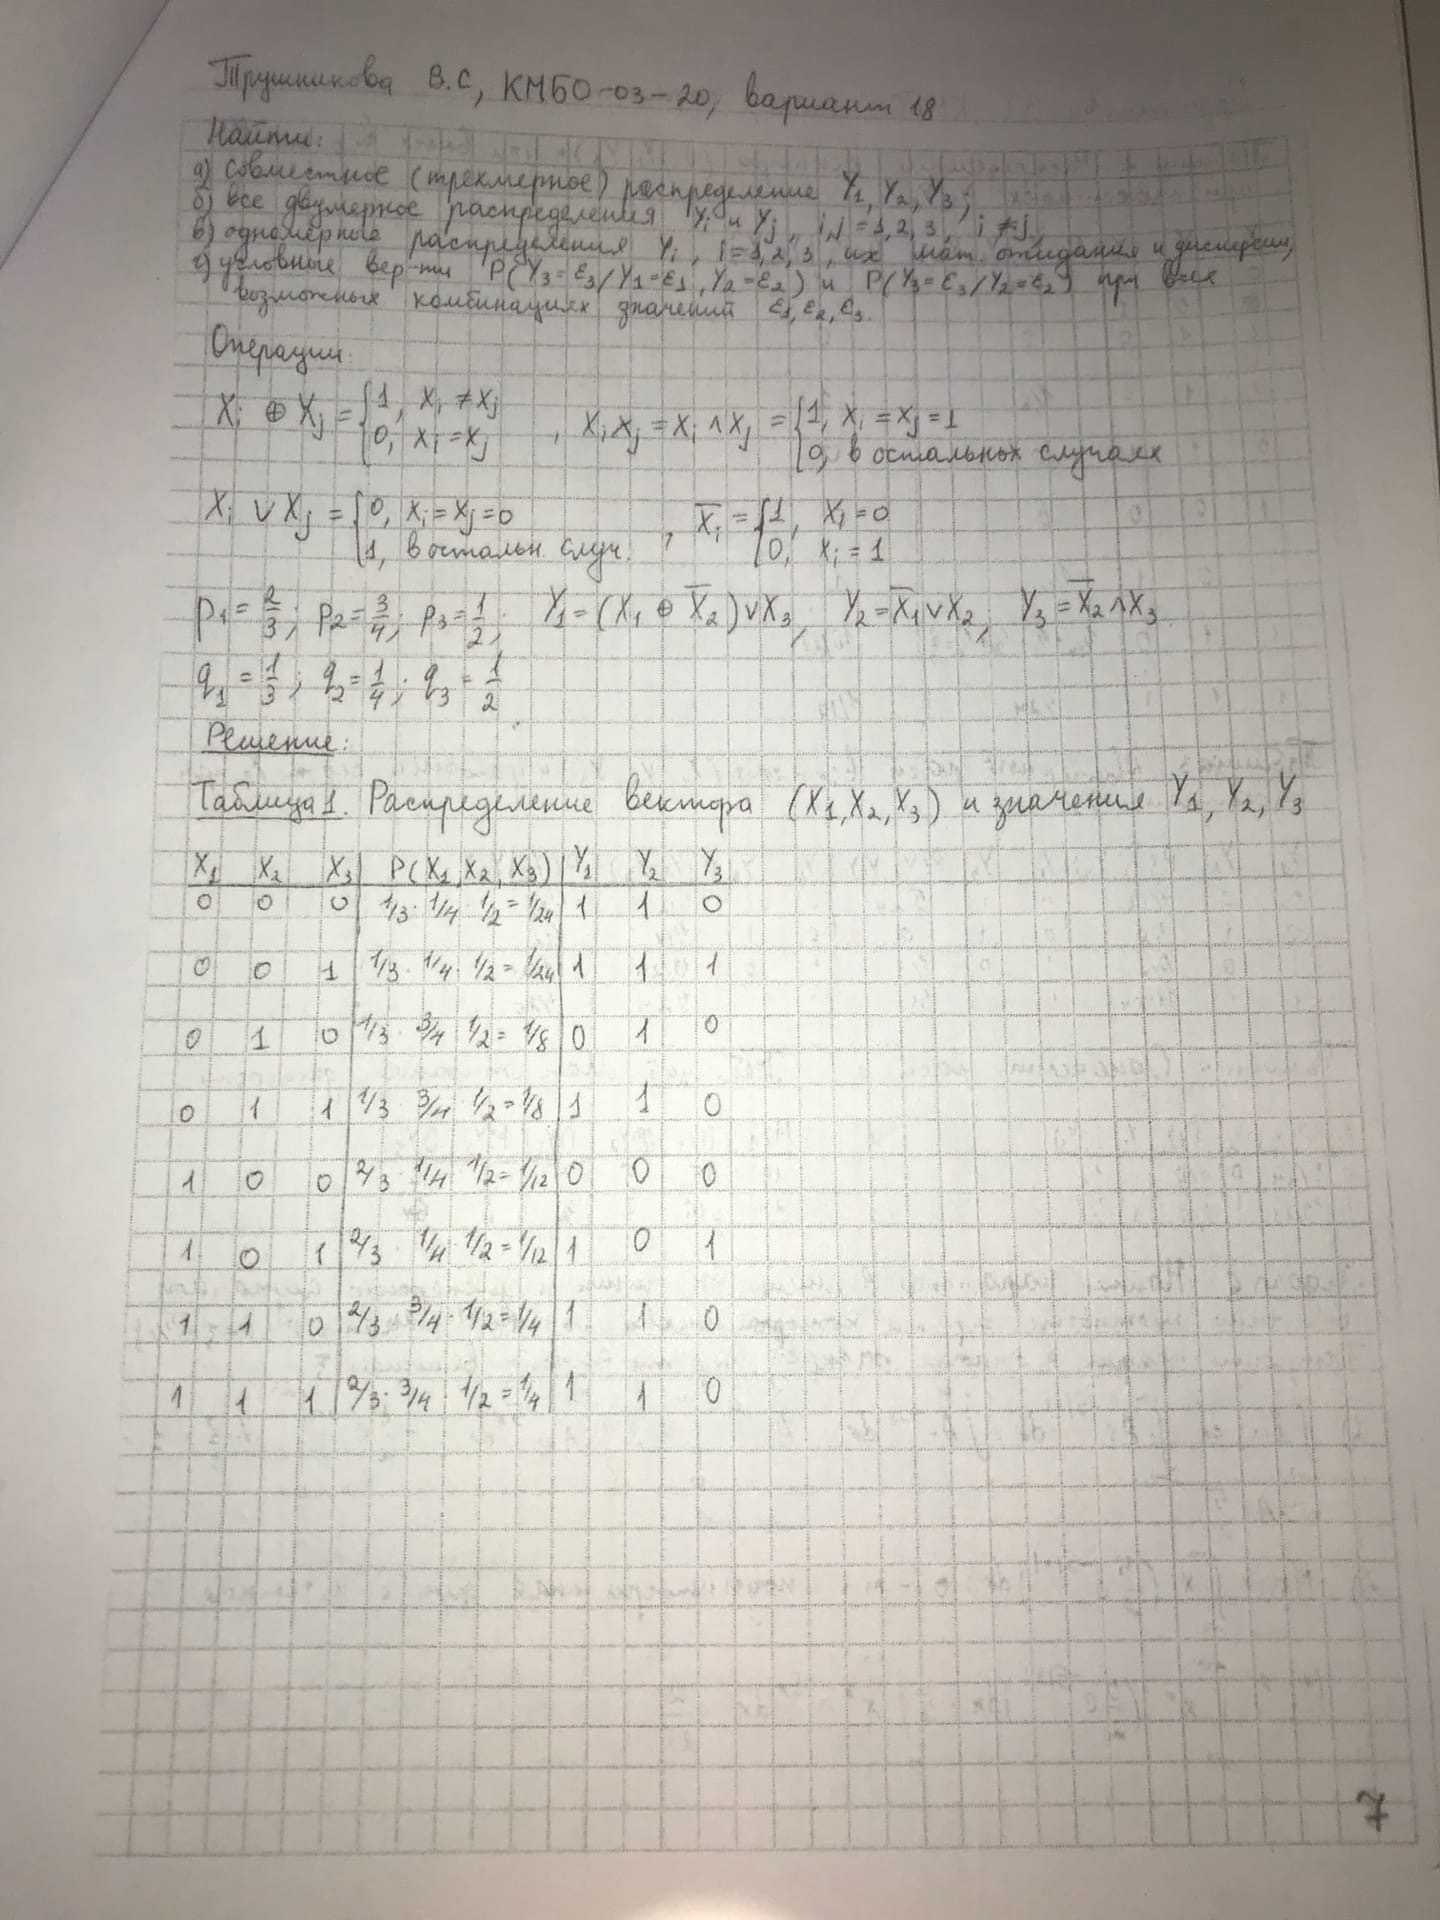 Трушникова В.С, КМБО-03-20, вариант 18
Найти:
а) совместное (трёхмерное) распределение Y1, Y2, Y3;
б) все двумерное распределения Yi и Yj, i,j = 1,2,3, i ≠ j,
в) одномерные распределения Yi, i=1,2,3, их мат. ожидания и дисперсии,
г) условные вер-ти P(Y3=ε3/Y1=ε1, Y2=ε2) и P(Y3=ε3/Y2=ε2) при всех
возможных комбинациях значений ε1, ε2, ε3.
Операции:
Xi ⊕ Xj = {1, Xi ≠ Xj; 0, Xi = Xj , XiXj = Xi ∧ Xj = {1, Xi = Xj = 1; 0, в остальных случаях
Xi ∨ Xj = {0, Xi = Xj = 0; 1, в остальн. случ. , X̄i = {1, Xi = 0; 0, Xi = 1
p1 = 2/3; p2 = 3/4; p3 = 1/2; Y1 = (X1 ⊕ X̄2) ∨ X3, Y2 = X̄1 ∨ X2, Y3 = X̄2 ∧ X3.
q1 = 1/3; q2 = 1/4; q3 = 1/2
Решение:
Таблица 1. Распределение вектора (X1, X2, X3) и значения Y1, Y2, Y3
X1 X2 X3 P(X1, X2, X3) Y1 Y2 Y3
0 0 0 1/3 · 1/4 · 1/2 = 1/24 1 1 0
0 0 1 1/3 · 1/4 · 1/2 = 1/24 1 1 1
0 1 0 1/3 · 3/4 · 1/2 = 1/8 0 1 0
0 1 1 1/3 · 3/4 · 1/2 = 1/8 1 1 0
1 0 0 2/3 · 1/4 · 1/2 = 1/12 0 0 0
1 0 1 2/3 · 1/4 · 1/2 = 1/12 1 0 1
1 1 0 2/3 · 3/4 · 1/2 = 1/4 1 1 0
1 1 1 2/3 · 3/4 · 1/2 = 1/4 1 1 0
7